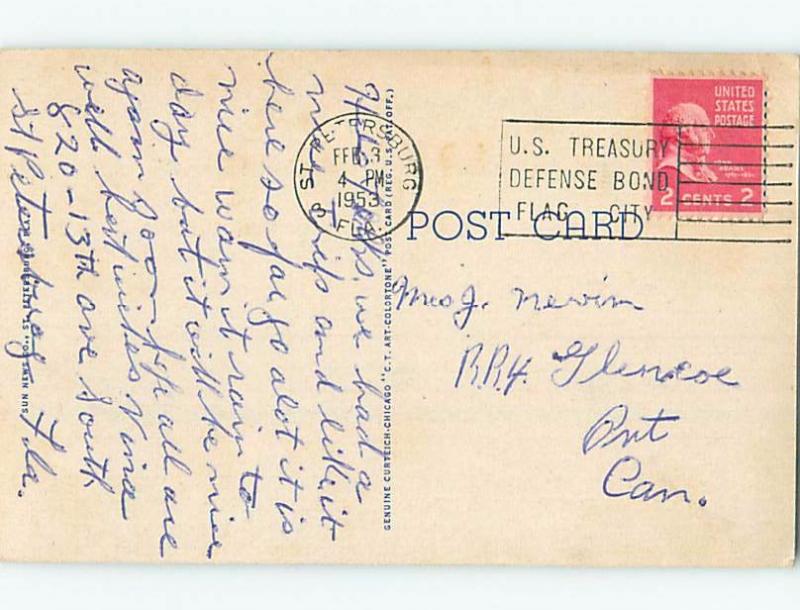 we had a
nice trip and like it
here so far go alot it is
nice warm it rain to
day but it will be nice
again soon hope all are
well best wishes Vina
820-13th ave South
St Petersburg Fla.
SUN NEWS CO., ST. PETERSBURG
GENUINE CURTEICH-CHICAGO "C.T. ART-COLORTONE" POST CARD (REG. U.S. PAT. OFF.)
ST. PETERSBURG
FEB 3
4 PM
1953
FLA.
3
U.S. TREASURY
DEFENSE BOND
FLAG CITY
UNITED
STATES
POSTAGE
2 CENTS 2
POST CARD
Mrs J. Nevin
R.R.4. Glencoe
Ont
Can.